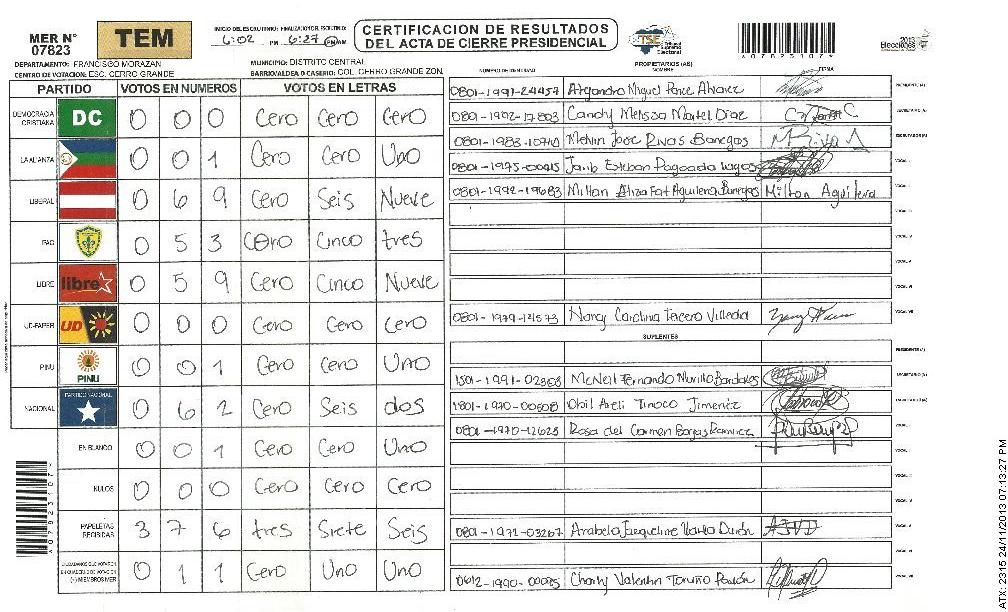 MER N° 07823
TEM
INICIO DEL ESCRUTINIO: FINALIZACION DEL ESCRUTINIO:
6:02 PM 6:27 PM AM
CERTIFICACION DE RESULTADOS
DEL ACTA DE CIERRE PRESIDENCIAL
TSE Tribunal Supremo Electoral
*07823107*
2013 Elecciones
DEPARTAMENTO: FRANCISCO MORAZAN
MUNICIPIO: DISTRITO CENTRAL
CENTRO DE VOTACION: ESC. CERRO GRANDE
BARRIO/ALDEA O CASERIO: COL. CERRO GRANDE ZON.
PARTIDO VOTOS EN NUMEROS VOTOS EN LETRAS
DEMOCRACIA CRISTIANA DC 0 0 0 Cero Cero Cero
LA ALIANZA 0 0 1 Cero Cero Uno
LIBERAL 0 6 9 Cero Seis Nueve
PAC 0 5 3 Cero Cinco tres
LIBRE libre 0 5 9 Cero Cinco Nueve
UD-FAPER UD 0 0 0 Cero Cero Cero
PINU PINU 0 0 1 Cero Cero Uno
NACIONAL PARTIDO NACIONAL 0 6 2 Cero Seis dos
EN BLANCO 0 0 1 Cero Cero Uno
NULOS 0 0 0 Cero Cero Cero
PAPELETAS RECIBIDAS 3 7 6 tres Siete Seis
CIUDADANOS QUE VOTARON EN CUADERNO DE VOTACION (+) MIEMBROS MER 0 1 1 Cero Uno Uno
*07823107*
NUMERO DE IDENTIDAD PROPIETARIOS (AS) NOMBRE FIRMA
0801-1991-24457 Alejandro Miguel Ponce Alvarez PRESIDENTE (A)
0801-1992-17803 Candy Melissa Martel Diaz SECRETARIO (A)
0801-1983-10740 Melvin Jose Rivas Banegas ESCRUTADOR (A)
0801-1975-00915 Janib Esteban Pagoada Lagos VOCAL I
0801-1992-19683 Milton Aguilera VOCAL II
VOCAL III
VOCAL IV
VOCAL V
VOCAL VI
0801-1979-14573 Nancy Carolina Tercero Villeda VOCAL VII
SUPLENTES
PRESIDENTE (A)
1501-1991-02308 McNeil Fernando Murillo Bardales SECRETARIO (A)
1801-1970-00608 Tinoco Jimenez
0801-1970-12628 Rosa del Carmen Borjas Ramirez
0801-1972-03267 Arabela Jacqueline Durón VOCAL V
VOCAL VI
0612-1990-00095 Charly Valentin Toruño VOCAL VII
ATX: 2315 24/11/2013 07:13:27 PM